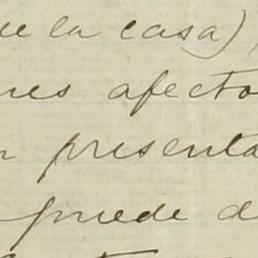 ue la casa),
nes afecto
n presenta
puede d